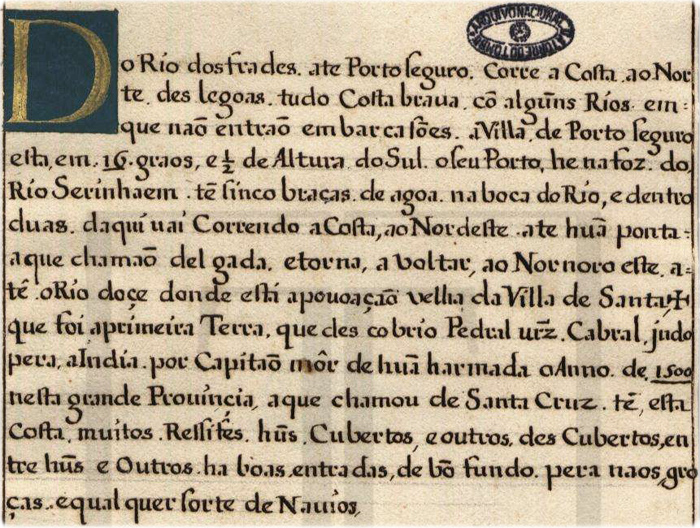 ARQUIVO NACIONAL DA TORRE DO TOMBO
Do Rio dos frades. ate Porto seguro. Corre a Costa. ao Nor
te. des legoas. tudo Costa braua. cõ algũns Rios. em-
que naõ entraõ embarcasões. aVilla. de Porto seguro
esta, em. 16. graos, e ½ de Altura. do Sul. o seu Porto, he na foz. do,
Rio Serinhaem. tẽ sinco braças. de agoa. na boca do Rio, e dentro
duas. daqui uai Correndo aCosta, ao Nordeste. ate huã ponta-
aque chamaõ del gada. etorna, a voltar, ao Nornoroeste. a-
tẽ. oRio doçe donde està apouoaçaõ velha da Villa de Santa ✝
que foi aprimeira Terra, que des cobrio Pedral urz. Cabral, jndo
pera, aIndia. por Capitaõ môr de huã harmada oAnno. de, 1500
nesta grande Prouincia, aque chamou de Santa Cruz. tẽ, esta
Costa, muitos. Ressifes. hũs. Cubertos, e outros, des Cubertos, en
tre hũs e Outros. ha boas, entradas, de bõ fundo. pera naos, gro
ças. e qual quer sorte de Nauios,